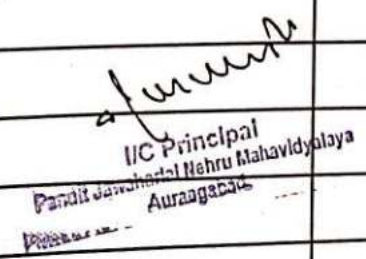 I/C Principal
Pandit Jawaharlal Nehru Mahavidyalaya
Auraagabad